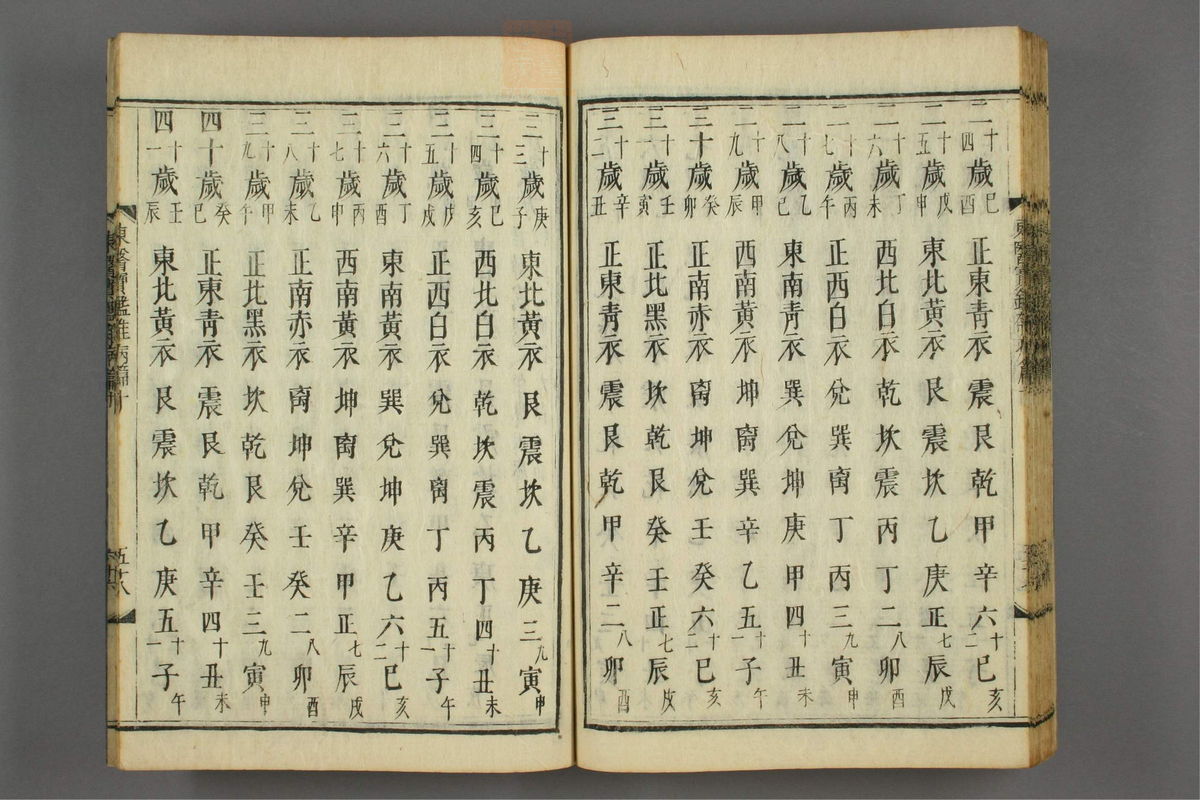 二十四歲己酉正東靑衣震艮乾甲辛六十二巳亥
二十五歲戊申東北黃衣艮震坎乙庚正七辰戌
二十六歲丁未西北白衣乾坎震丙丁二八卯酉
二十七歲丙午正西白衣兌巽离丁丙三九寅申
二十八歲乙巳東南靑衣巽兌坤庚甲四十丑未
二十九歲甲辰西南黃衣坤离巽辛乙五十一子午
三十歲癸卯正南赤衣离坤兌壬癸六十二巳亥
三十一歲壬寅正北黑衣坎乾艮癸壬正七辰戌
三十二歲辛丑正東靑衣震艮乾甲辛二八卯酉
三十三歲庚子東北黃衣艮震坎乙庚三九寅申
三十四歲己亥西北白衣乾坎震丙丁四十丑未
三十五歲戊戌正西白衣兌巽离丁丙五十一子午
三十六歲丁酉東南黃衣巽兌坤庚乙六十二巳亥
三十七歲丙申西南黃衣坤离巽辛甲正七辰戌
三十八歲乙未正南赤衣离坤兌壬癸二八卯酉
三十九歲甲午正北黑衣坎乾艮癸壬三九寅申
四十歲癸巳正東靑衣震艮乾甲辛四十丑未
四十一歲壬辰東北黃衣艮震坎乙庚五十一子午
東醫寶鑑雜病篇十